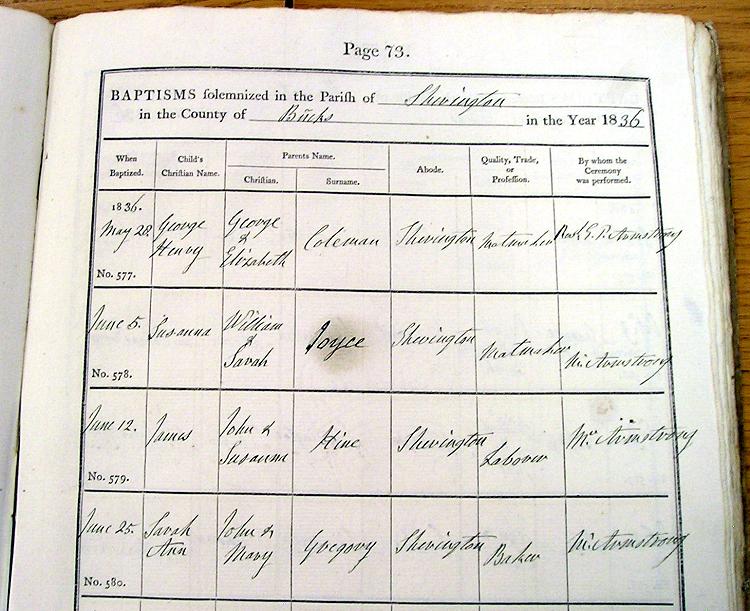 Page 73.
BAPTISMS solemnized in the Parish of Sherington
in the County of Bucks in the Year 1836
When Baptized. Child's Christian Name. Parents Name. Abode. Quality, Trade, or Profession. By whom the Ceremony was performed.
Christian. Surname.
1836.
May 28. George Henry George & Elizabeth Coleman Sherington Matmaker Revd G. P. Armstrong
No. 577.
June 5. Susanna William & Sarah Joyce Sherington Matmaker Mr. Armstrong
No. 578.
June 12. James John & Susanna Hine Sherington Laborer Mr. Armstrong
No. 579.
June 25. Sarah Ann John & Mary Gregory Sherington Baker Mr. Armstrong
No. 580.